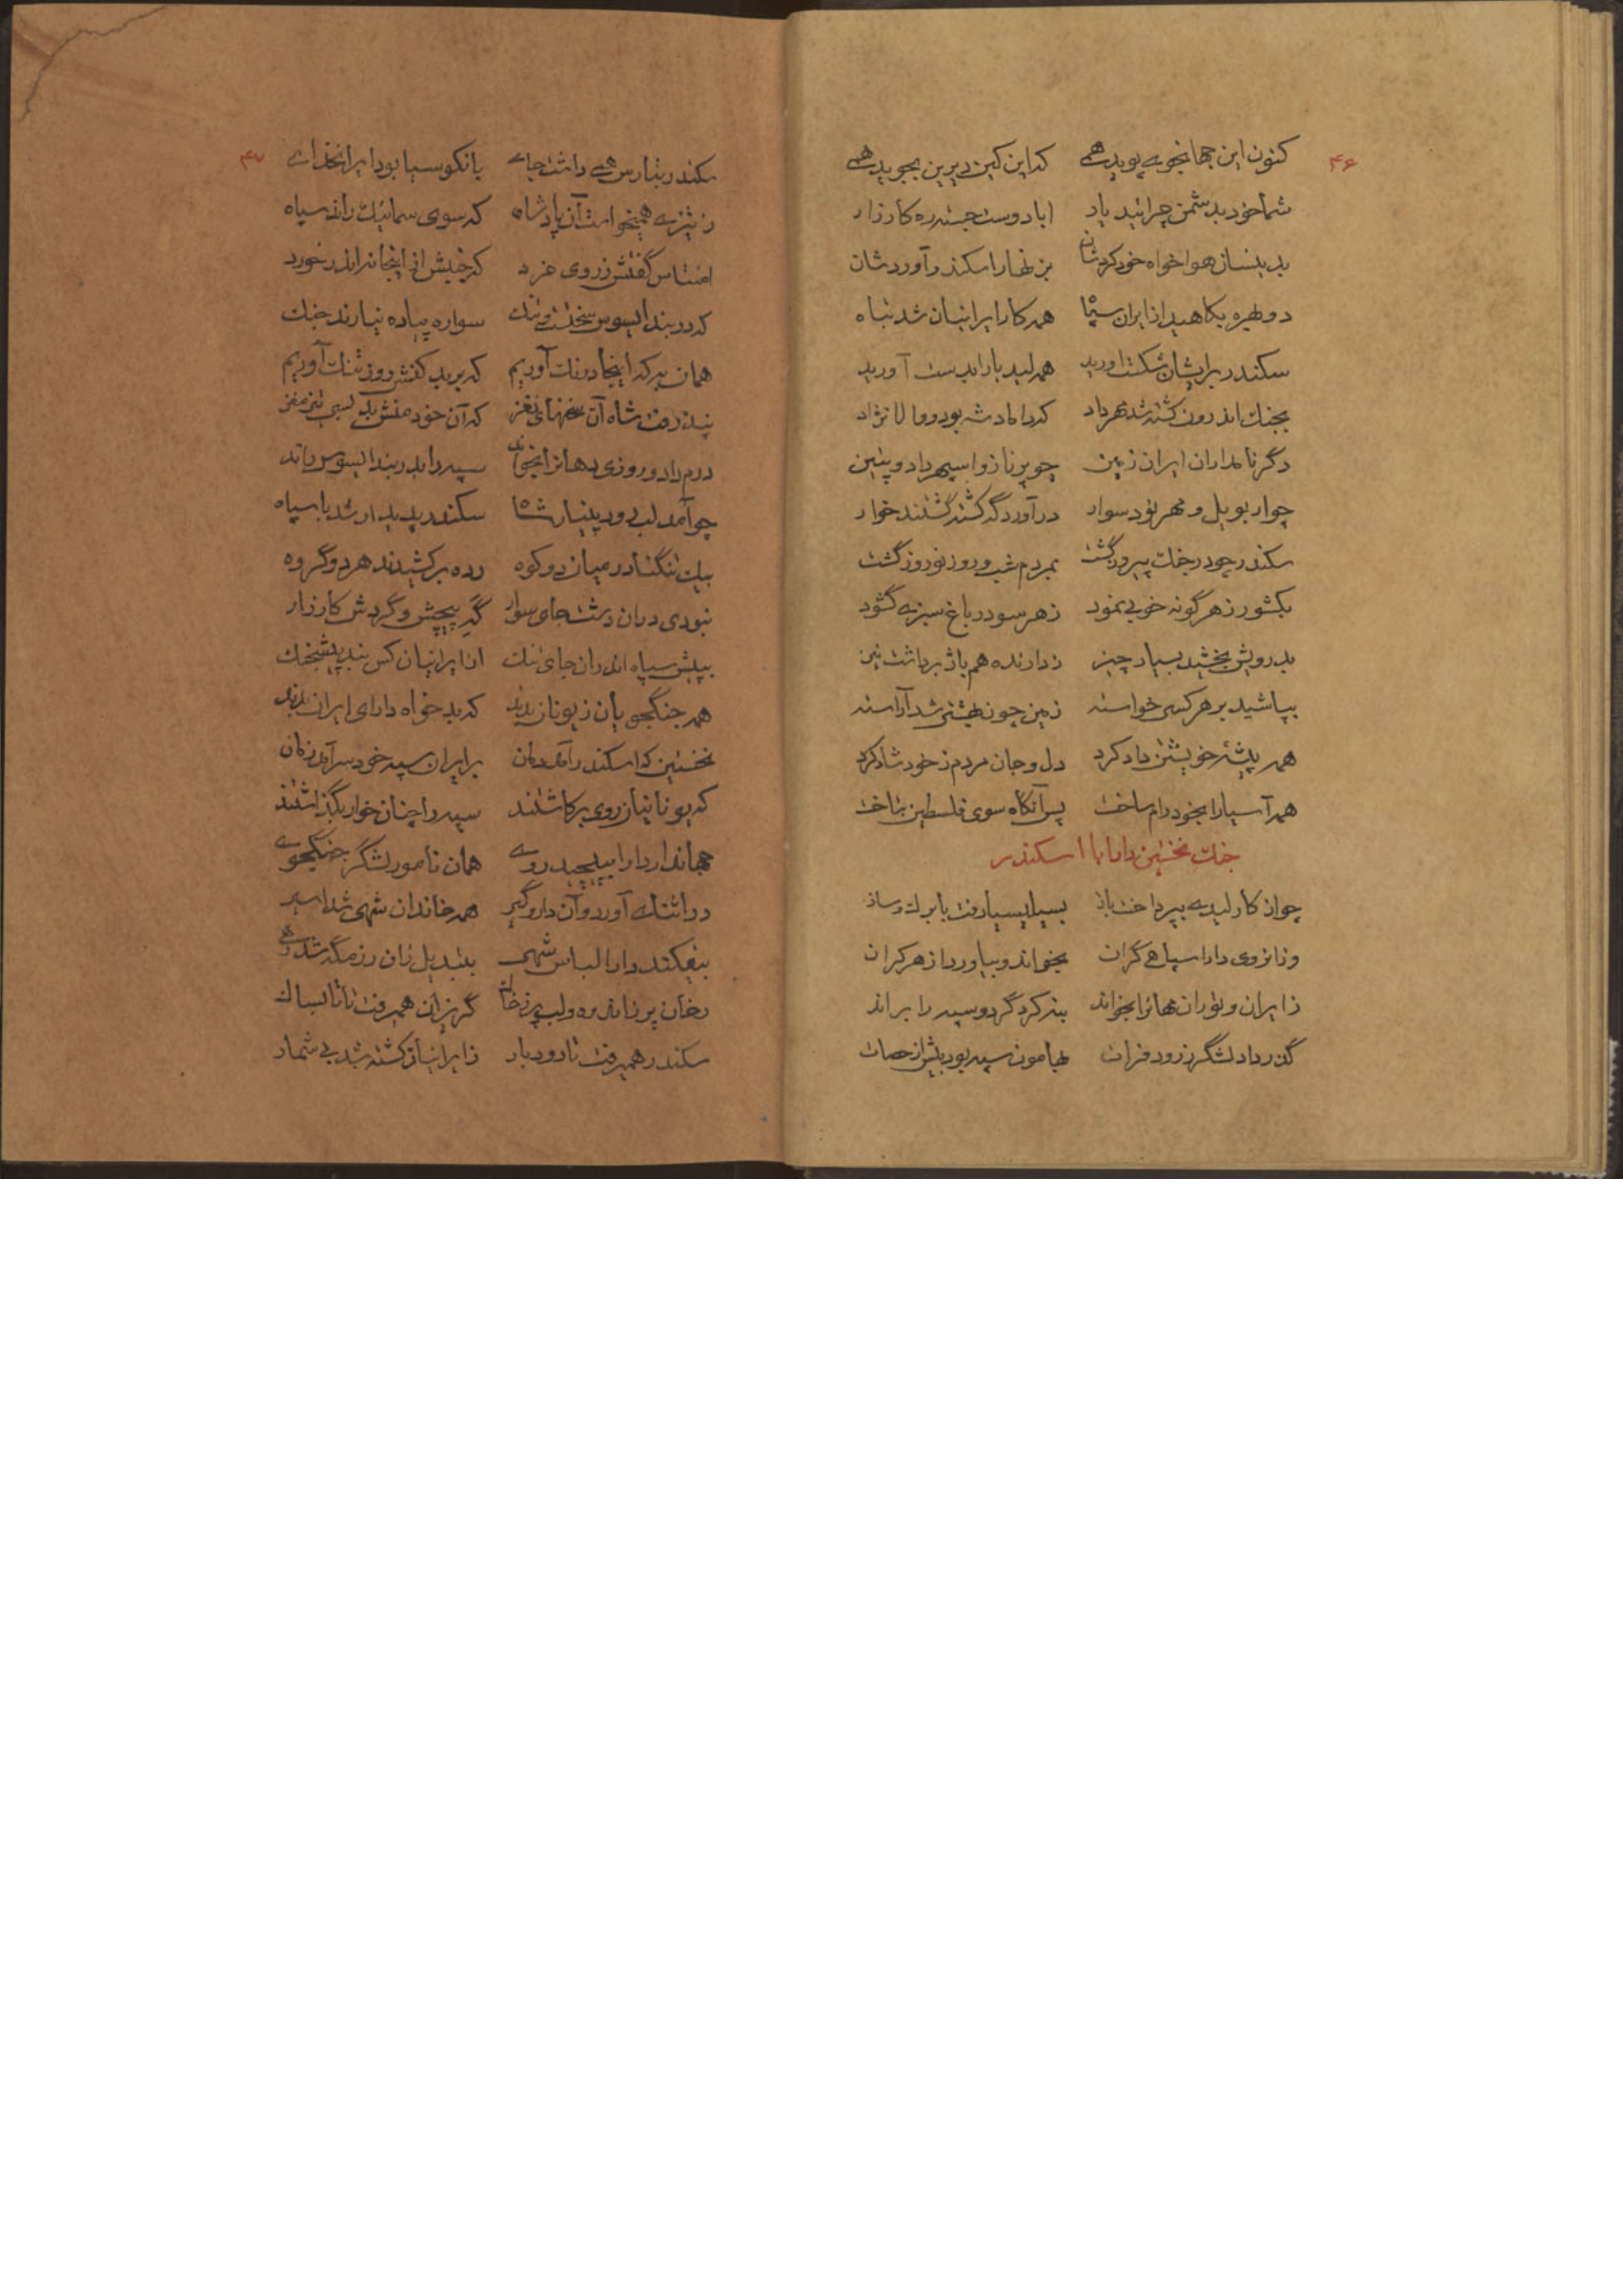 ۴۶
کنون این جهانجوی پوید همی که این کین دیرین بجوید همی
شما خود بدشمن چرائید یاد ابا دوست جسته ره کارزار
بدینسان هواخواه خود کردشان بزنهار اسکندر آوردشان
دو بهره بکاهید از ایران سپاه همه کار ایرانیان شد تباه
سکندر بر ایشان شکست آورید همه لیدیا را بدست آورید
بجنگ اندرون کشته شد مهرداد که داماد شه بود و والا نژاد
دگر نامداران ایران زمین چو برنازوا سپهرداد و پتین
چو اربوپل و مهرنود سوار در آوردگه کشته گشتند خوار
سکندر چو در جنگ پیروز گشت بمردم شب و روز نوروز گشت
بکشور ز هر گونه خوبی نمود ز هر سو در باغ سبزی گشود
بدرویش بخشید بسیار چیز ز دارنده هم باژ برداشت نیز
بپاشید بر هر کسی خواسته زمین چون بهشتی شد آراسته
همه پیشه خویشتن داد کرد دل و جان مردم ز خود شاد کرد
همه آسیا را بخود رام ساخت پس آنگاه سوی فلسطین بتاخت
جنگ نخستین دارا با اسکندر
چو از کار لیدی بپرداخت باز بسیلیسیا رفت با برگ و ساز
وزانروی دارا سپاهی گران بخواند و بیاورد از هر کران
ز ایران و توران مهانرا بخواند بنه کرد گرد و سپه را براند
گذر داد لشگر ز رود فرات بهامون سپه بود بیش از حصات
۴۷
سکندر بتارس همی داشت جای بانکوسیا بود ایرانخدای
ز تیزی همیخواست آن پادشاه که سوی سمانیک راند سپاه
امنتاس گفتش ز روی خرد که جنبش از اینجا نه اندر خورد
که دربند ایسوس سختست و تنگ سواره پیاده نیارند جنگ
همان به که اینجا درنگ آوریم که بر بدکنش روز تنگ آوریم
نپذرفت شاه آن سخنهای نغز که آن خود منش بد بسی تیز مغز
درم داد و روزی دهانرا بخواند سپه را بدربند ایسوس راند
چو آمد لب رود پینار شاه سکندر پدیدار شد با سپاه
بیک تنگنا در میان دو کوه رده بر کشیدند هر دو گروه
نبودی دران دشت جای سوار گه پیچش و گردش کارزار
بپیش سپاه اندران جای تنگ از ایرانیان کس نبد پیش جنگ
همه جنگجویان ز یونان بدند که بدخواه دارای ایران بدند
نخستین که اسکندر آمد دمان بر ایران سپه خود سرآمد زمان
که یونانیان روی برکاشتند سپه را چنان خوار بگذاشتند
جهاندار دارا بپیچید روی همان نامور لشگر جنگجوی
در اشتاب آورد و آن دار و گیر همه خاندان شهی شد اسیر
بیفکند دارا لباس شهی بتبدیل زان رزمگه شد رهی
رخان پر ز اندوه و لب پر ز خاک گریزان همی رفت تا تاپساک
سکندر همی رفت تا رودبار ز ایرانیان کشته شد بی شمار